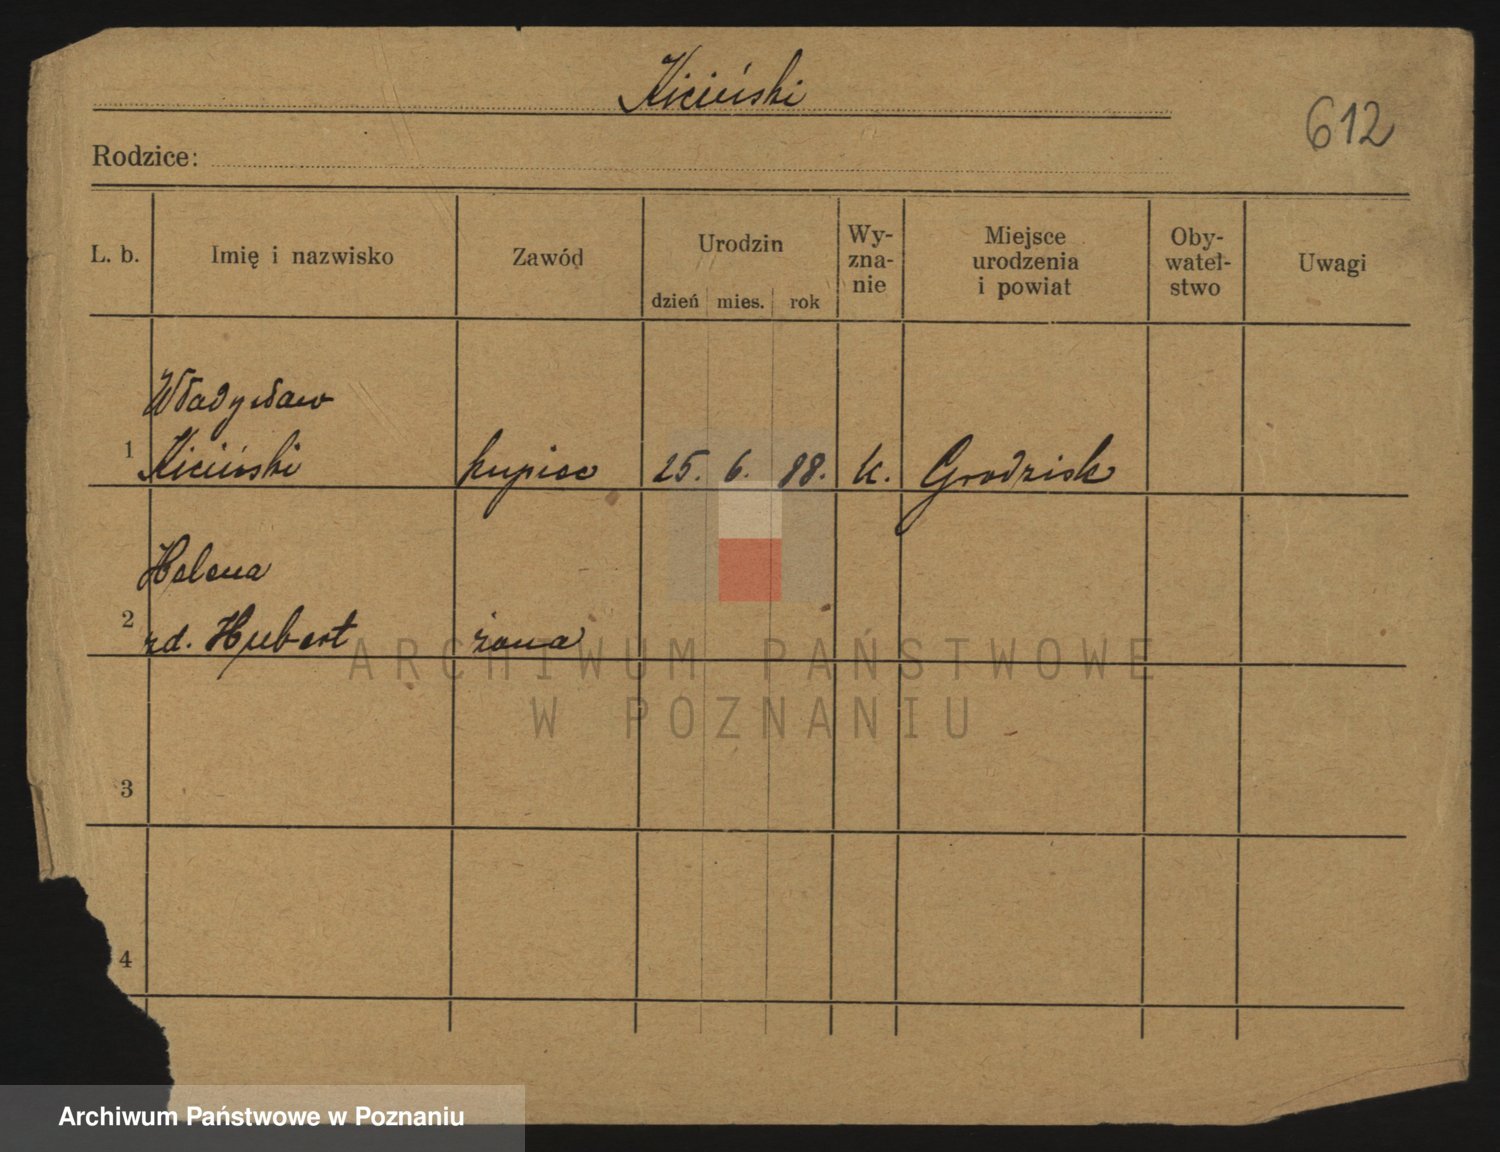 Kiciński
612
Rodzice:
L. b.
Imię i nazwisko
Zawód
Urodzin
dzień mies. rok
Wy-
zna-
nie
Miejsce
urodzenia
i powiat
Oby-
watel-
stwo
Uwagi
Władysław
1 Kiciński kupiec 25. 6. 88. k. Grodzisk
Helena
2 zd. Hubert żona
ARCHIWUM PAŃSTWOWE
W POZNANIU
3
4
Archiwum Państwowe w Poznaniu